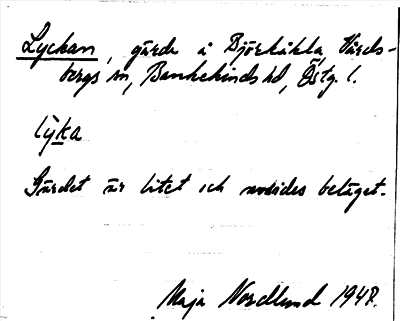 Lyckan, gärde å Björkäkla, Vårds-
bergs sn, Bankekinds hd, Östg. l.
lyka
Gärdet är litet och avsides beläget.
Maja Nordlund 1948.